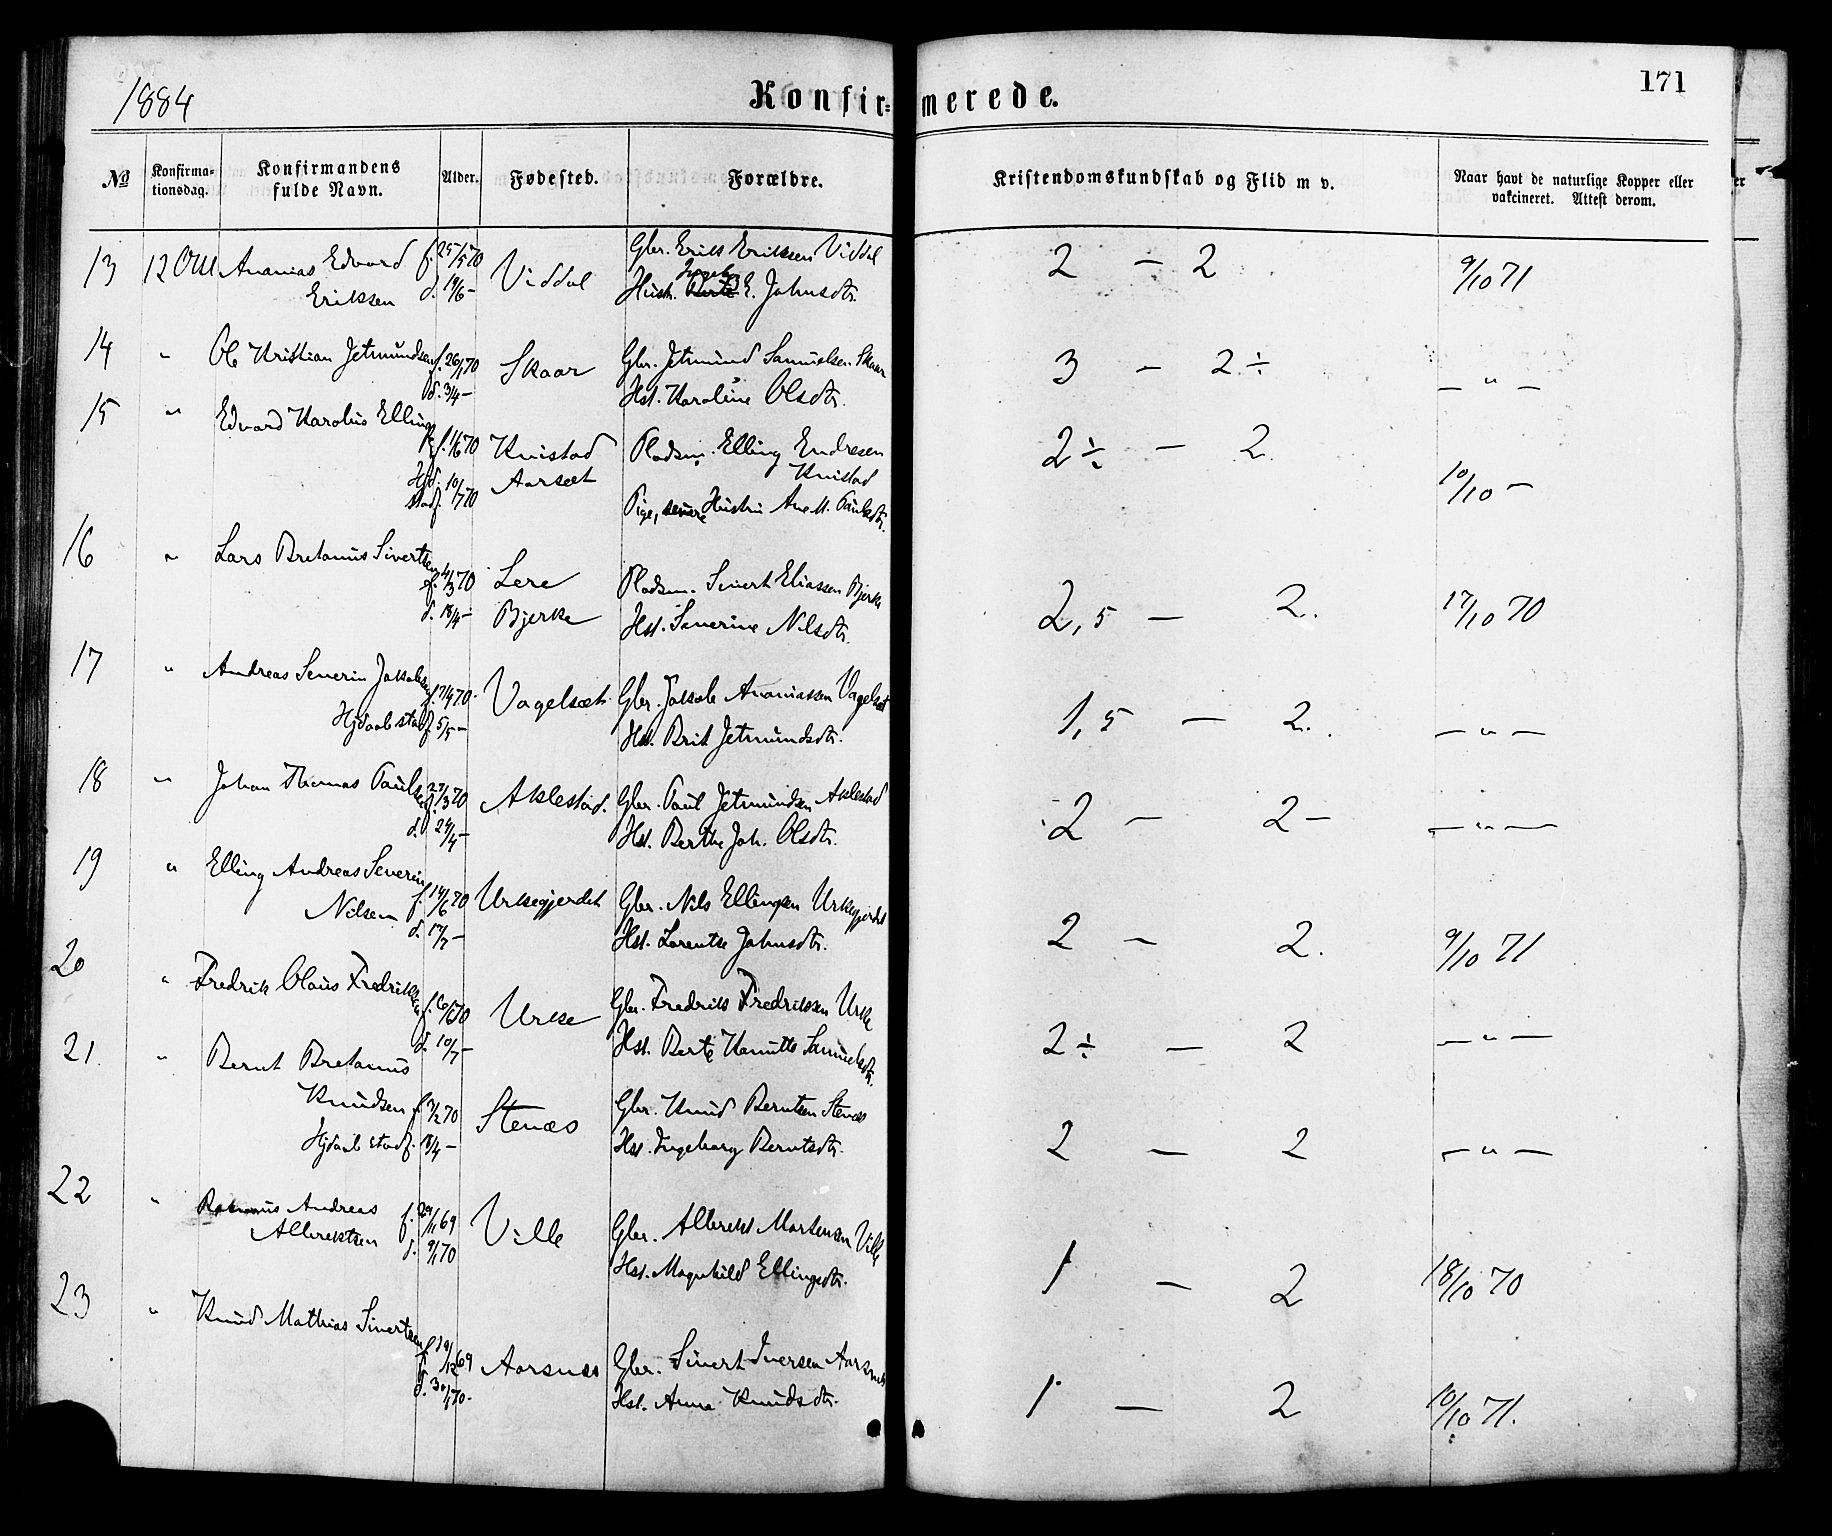 1884
Konfir=
merede.
171
No
Konfirma-
tionsdag.
Konfirmandens
fulde Navn.
Alder.
Fødested.
Forældre.
Kristendomskundskab og Flid m v.
Naar havt de naturlige Kopper eller
vakcineret. Attest derom.
13 12 Okt Ananias Edvard f. 25/5 70 Viddal Gbr. Erik Eriksen Viddal 2 — 2 9/10 71
Eriksen d. 19/6 – Hustr. E. Johnsdtr.
14 " Ole Kristian Jetmundsen f. 26/1 70 Skaar Gbr. Jetmund Samuelsen Skaar 3 — 2÷ — " —
d. 3/4 – Hst. Karoline Olsdtr.
15 " Edvard Karolus Elling
f. 1/6 70 Knistad Pladsm. Elling Endresen 2÷ — 2. 10/10 –
Hjd. 10/7 70 Aarsæt Knistad
stadf. Pige, senere Hustru Ane M. Paulsdtr.
16 " Lars Bretanus Sivertsen
f. 4/3 70 Lere Pladsm. Sivert Eliassen Bjerke 2,5 — 2. 17/10 70
d. 18/4 – Bjerke Hst. Severine Nilsdtr.
17 " Andreas Severin Jakobsen f. 7/4 70 Vagelsæt Gbr. Jakob Ananiassen Vagelsæt 1,5 — 2. — " —
Hjdøbt stadf. 5/5 – Hst. Brit Jetmundsdtr.
18 " Johan Thomas Paulsen f. 27/3 70 Aklestad. Gbr. Paul Jetmundsen Aklestad 2 — 2 – — " —
d. 24/4 – Hst. Berthe Joh. Olsdtr.
19 " Elling Andreas Severin
Nilsen f. 14/6 70 Urkegjerdet Gbr. Nils Ellingsen Urkegjerdet 2 — 2. 9/10 71
d. 17/7 – Hst. Lorentse Johnsdtr.
20 " Fredrik Olaus Fredriksen f. 6/5 70 Urke Gbr. Fredrik Fredriksen Urke 2÷ — 2 — " —
d. 10/7 – Hst. Berte Knutte Samuelsdtr.
21. " Bernt Bretanus
Knudsen f. 7/2 70 Stenæs Gbr. Knud Berntsen Stenæs 2 — 2 — " —
Hjdøbt stadf. 18/4 – Hst. Ingeborg Berntsdtr.
22 " Andreas f. 29/11 69 Ville Gbr. Albrekt Martensen Ville 1 — 2 18/10 70
Albrektsen d. 9/1 70 Hst. Magnhild Ellingsdtr.
23 " Knud Mathias Sivertsen
f. 19/12 69 Aarsnes Gbr. Sivert Iversen Aarsnes 1 — 2 10/10 71.
d. 30/1 70. Hst. Anne Knudsdtr.